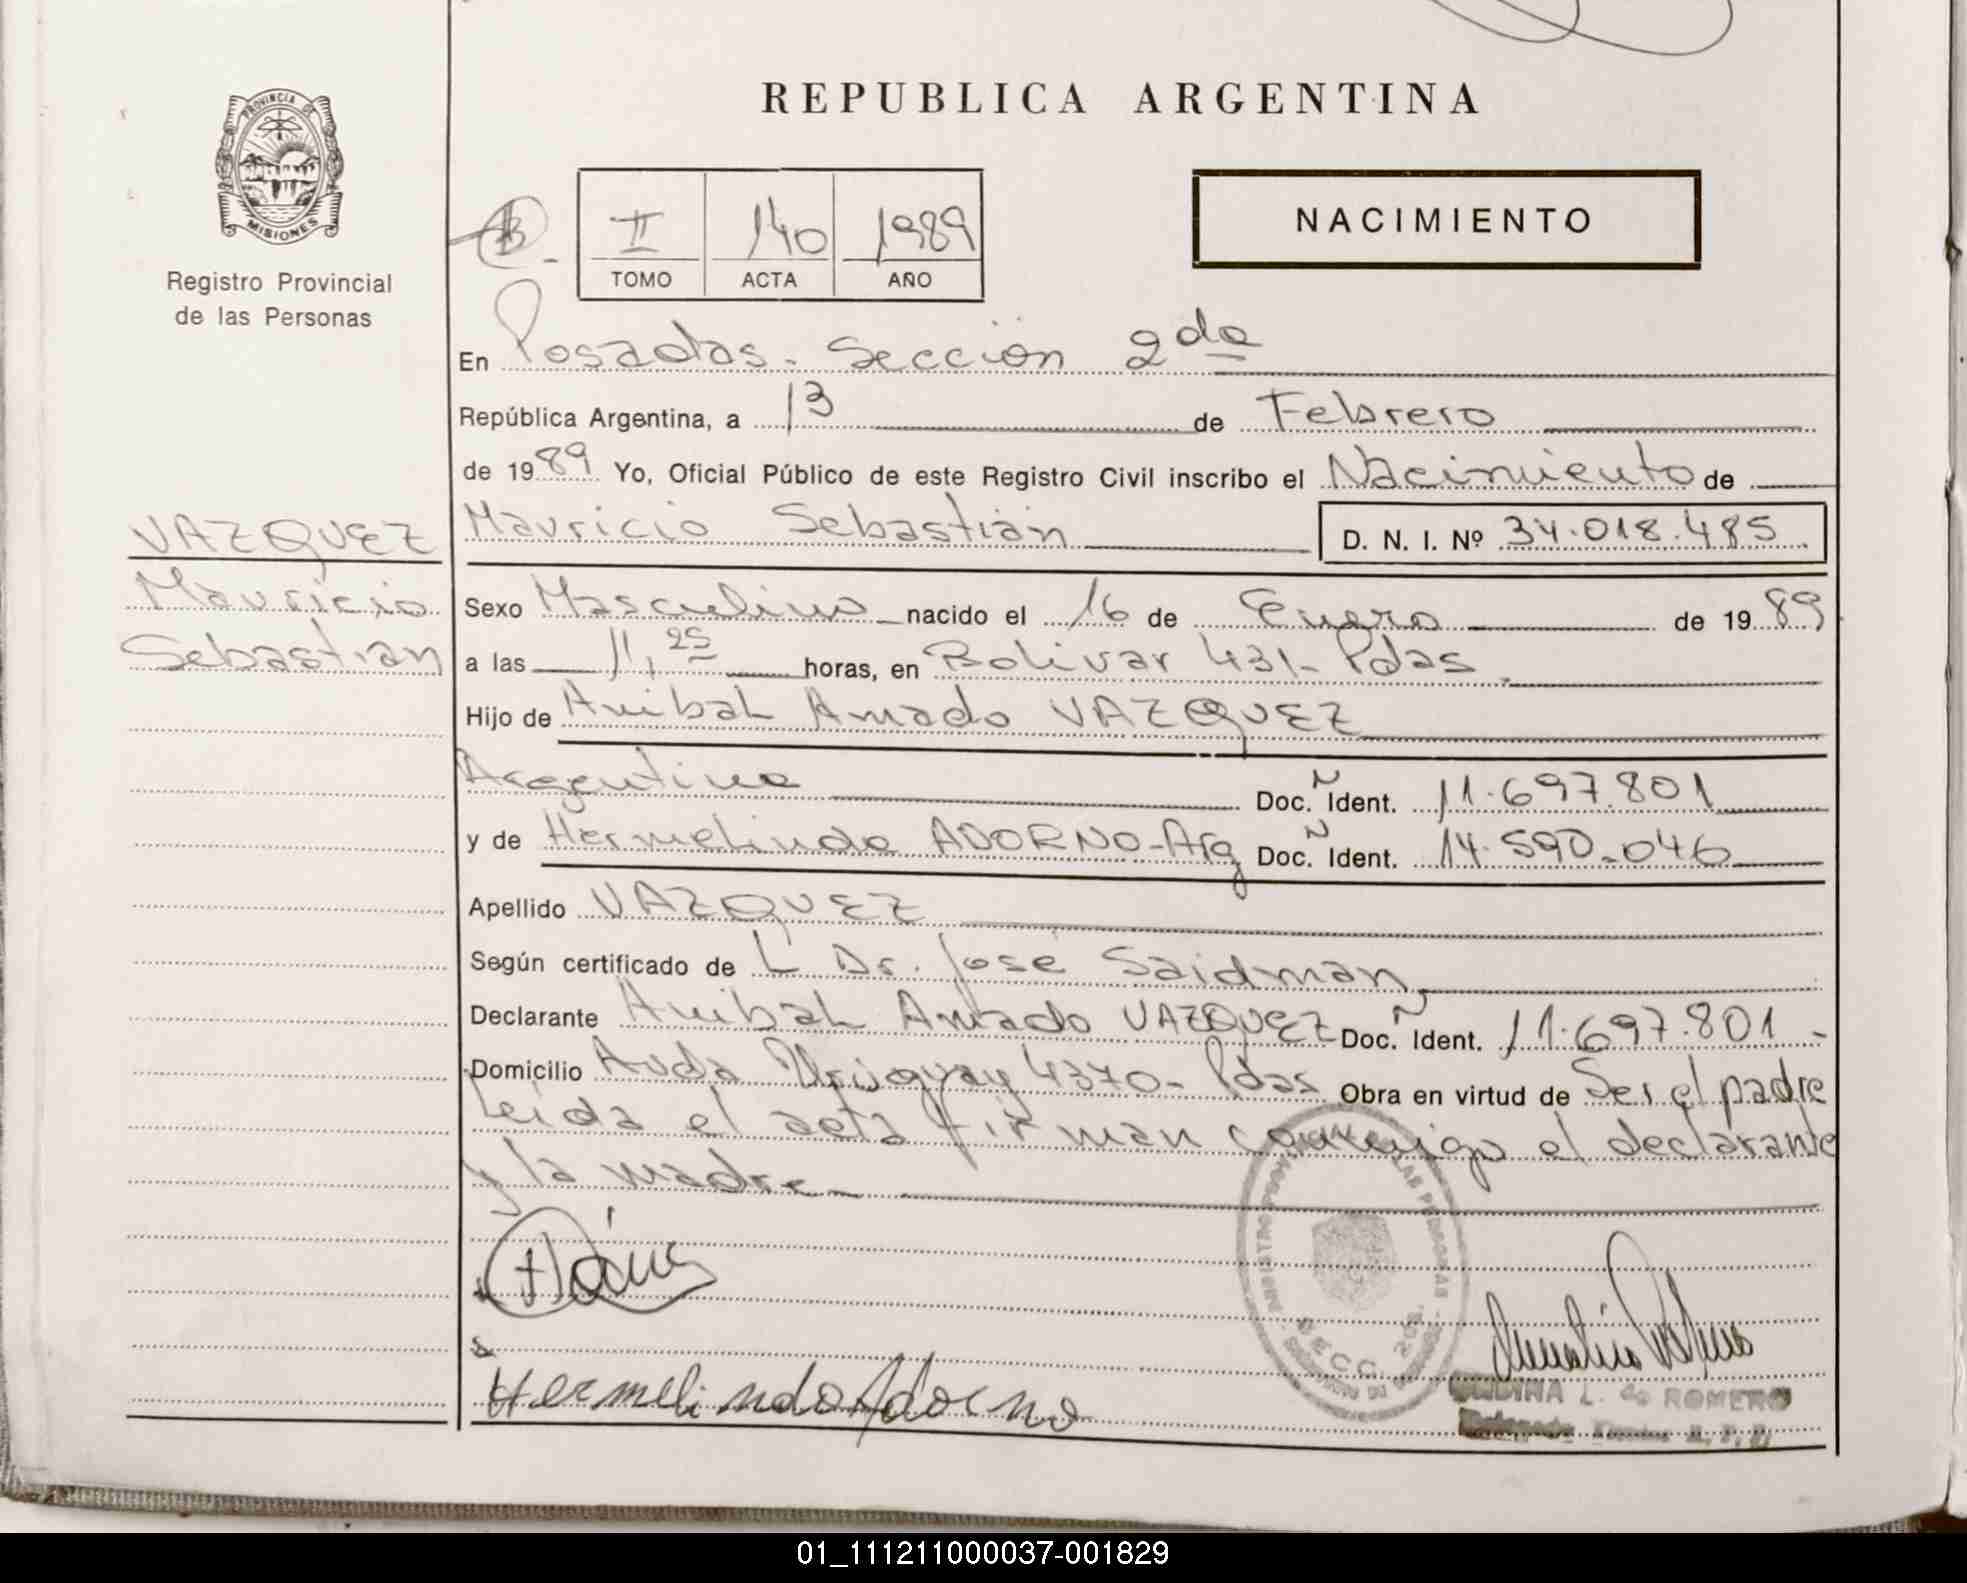 REPUBLICA ARGENTINA
PROVINCIA DE
MISIONES
Registro Provincial
de las Personas
II 140 1989
TOMO ACTA AÑO
NACIMIENTO
En Posadas - Sección 2da
República Argentina, a 13 de Febrero
de 1989 Yo, Oficial Público de este Registro Civil inscribo el Nacimiento de
VAZQUEZ
Mauricio
Sebastián
Mauricio Sebastián D. N. I. Nº 34.018.485
Sexo Masculino nacido el 16 de Enero de 1989
a las 11,25 horas, en Bolivar 431 - Pdas
Hijo de Anibal Amado VAZQUEZ
Argentino Doc. Ñ Ident. 11.697.801
y de Hermelinda ADORNO - Arg Doc. Ñ Ident. 14.590.046
Apellido VAZQUEZ
Según certificado de L Dr. José Saidman
Declarante Anibal Amado VAZQUEZ Doc. Ñ Ident. 11.697.801 -
Domicilio Avda Uruguay 4370 - Pdas Obra en virtud de Ser el padre
Leida el acta firman conmigo el declarante
y la madre
Hermelinda Adorno
L. de ROMERO
01_111211000037-001829